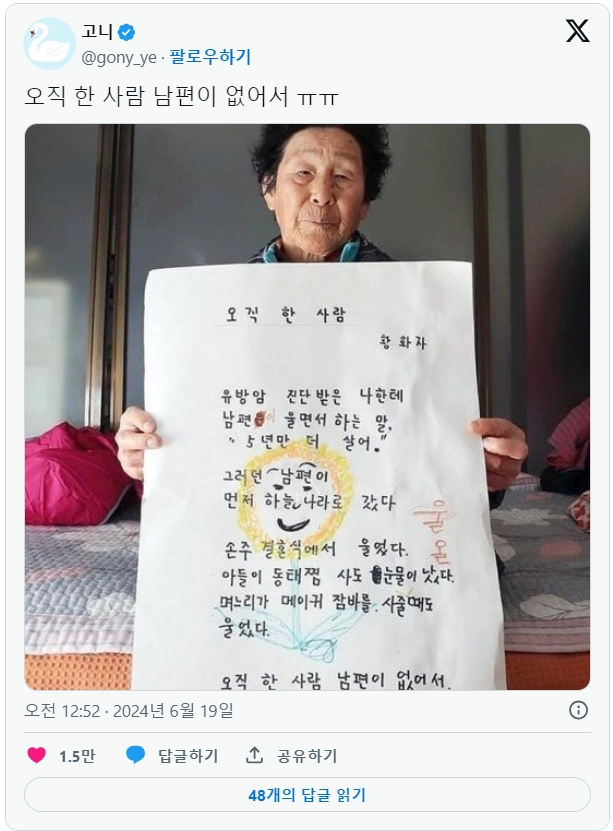 고니
@gony_ye · 팔로우하기
오직 한 사람 남편이 없어서 ㅠㅠ
오직 한 사람
황화자
유방암 진단 받은 나한테
남편이 울면서 하는 말,
"5년만 더 살어."
그러던 남편이
먼저 하늘나라로 갔다
손주 결혼식에서 울었다.
아들이 동태찜 사도 눈물이 났다.
며느리가 메이커 잠바를 사줄 때도
울었다.
오직 한 사람 남편이 없어서.
오전 12:52 · 2024년 6월 19일
1.5만 답글하기 공유하기
48개의 답글 읽기